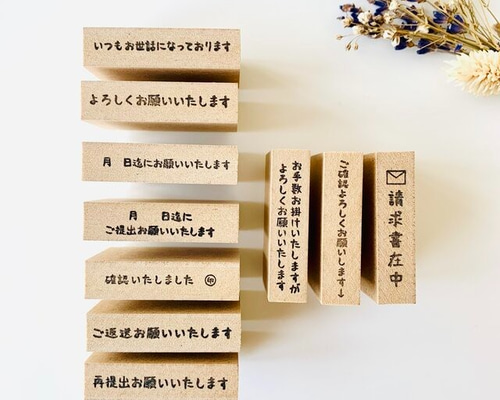 いつもお世話になっております
よろしくお願いいたします
月 日迄にお願いいたします
月 日迄に
ご提出お願いいたします
確認いたしました ㊞
ご返送お願いいたします
再提出お願いいたします
お手数お掛けいたしますが
よろしくお願いいたします
ご確認よろしくお願いします↓
請求書在中